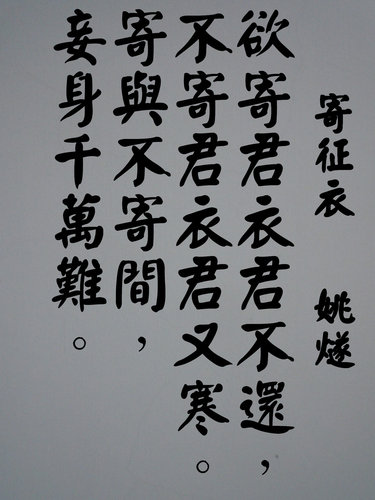 寄征衣　姚燧
欲寄君衣君不還，
不寄君衣君又寒。
寄與不寄間，
妾身千萬難。